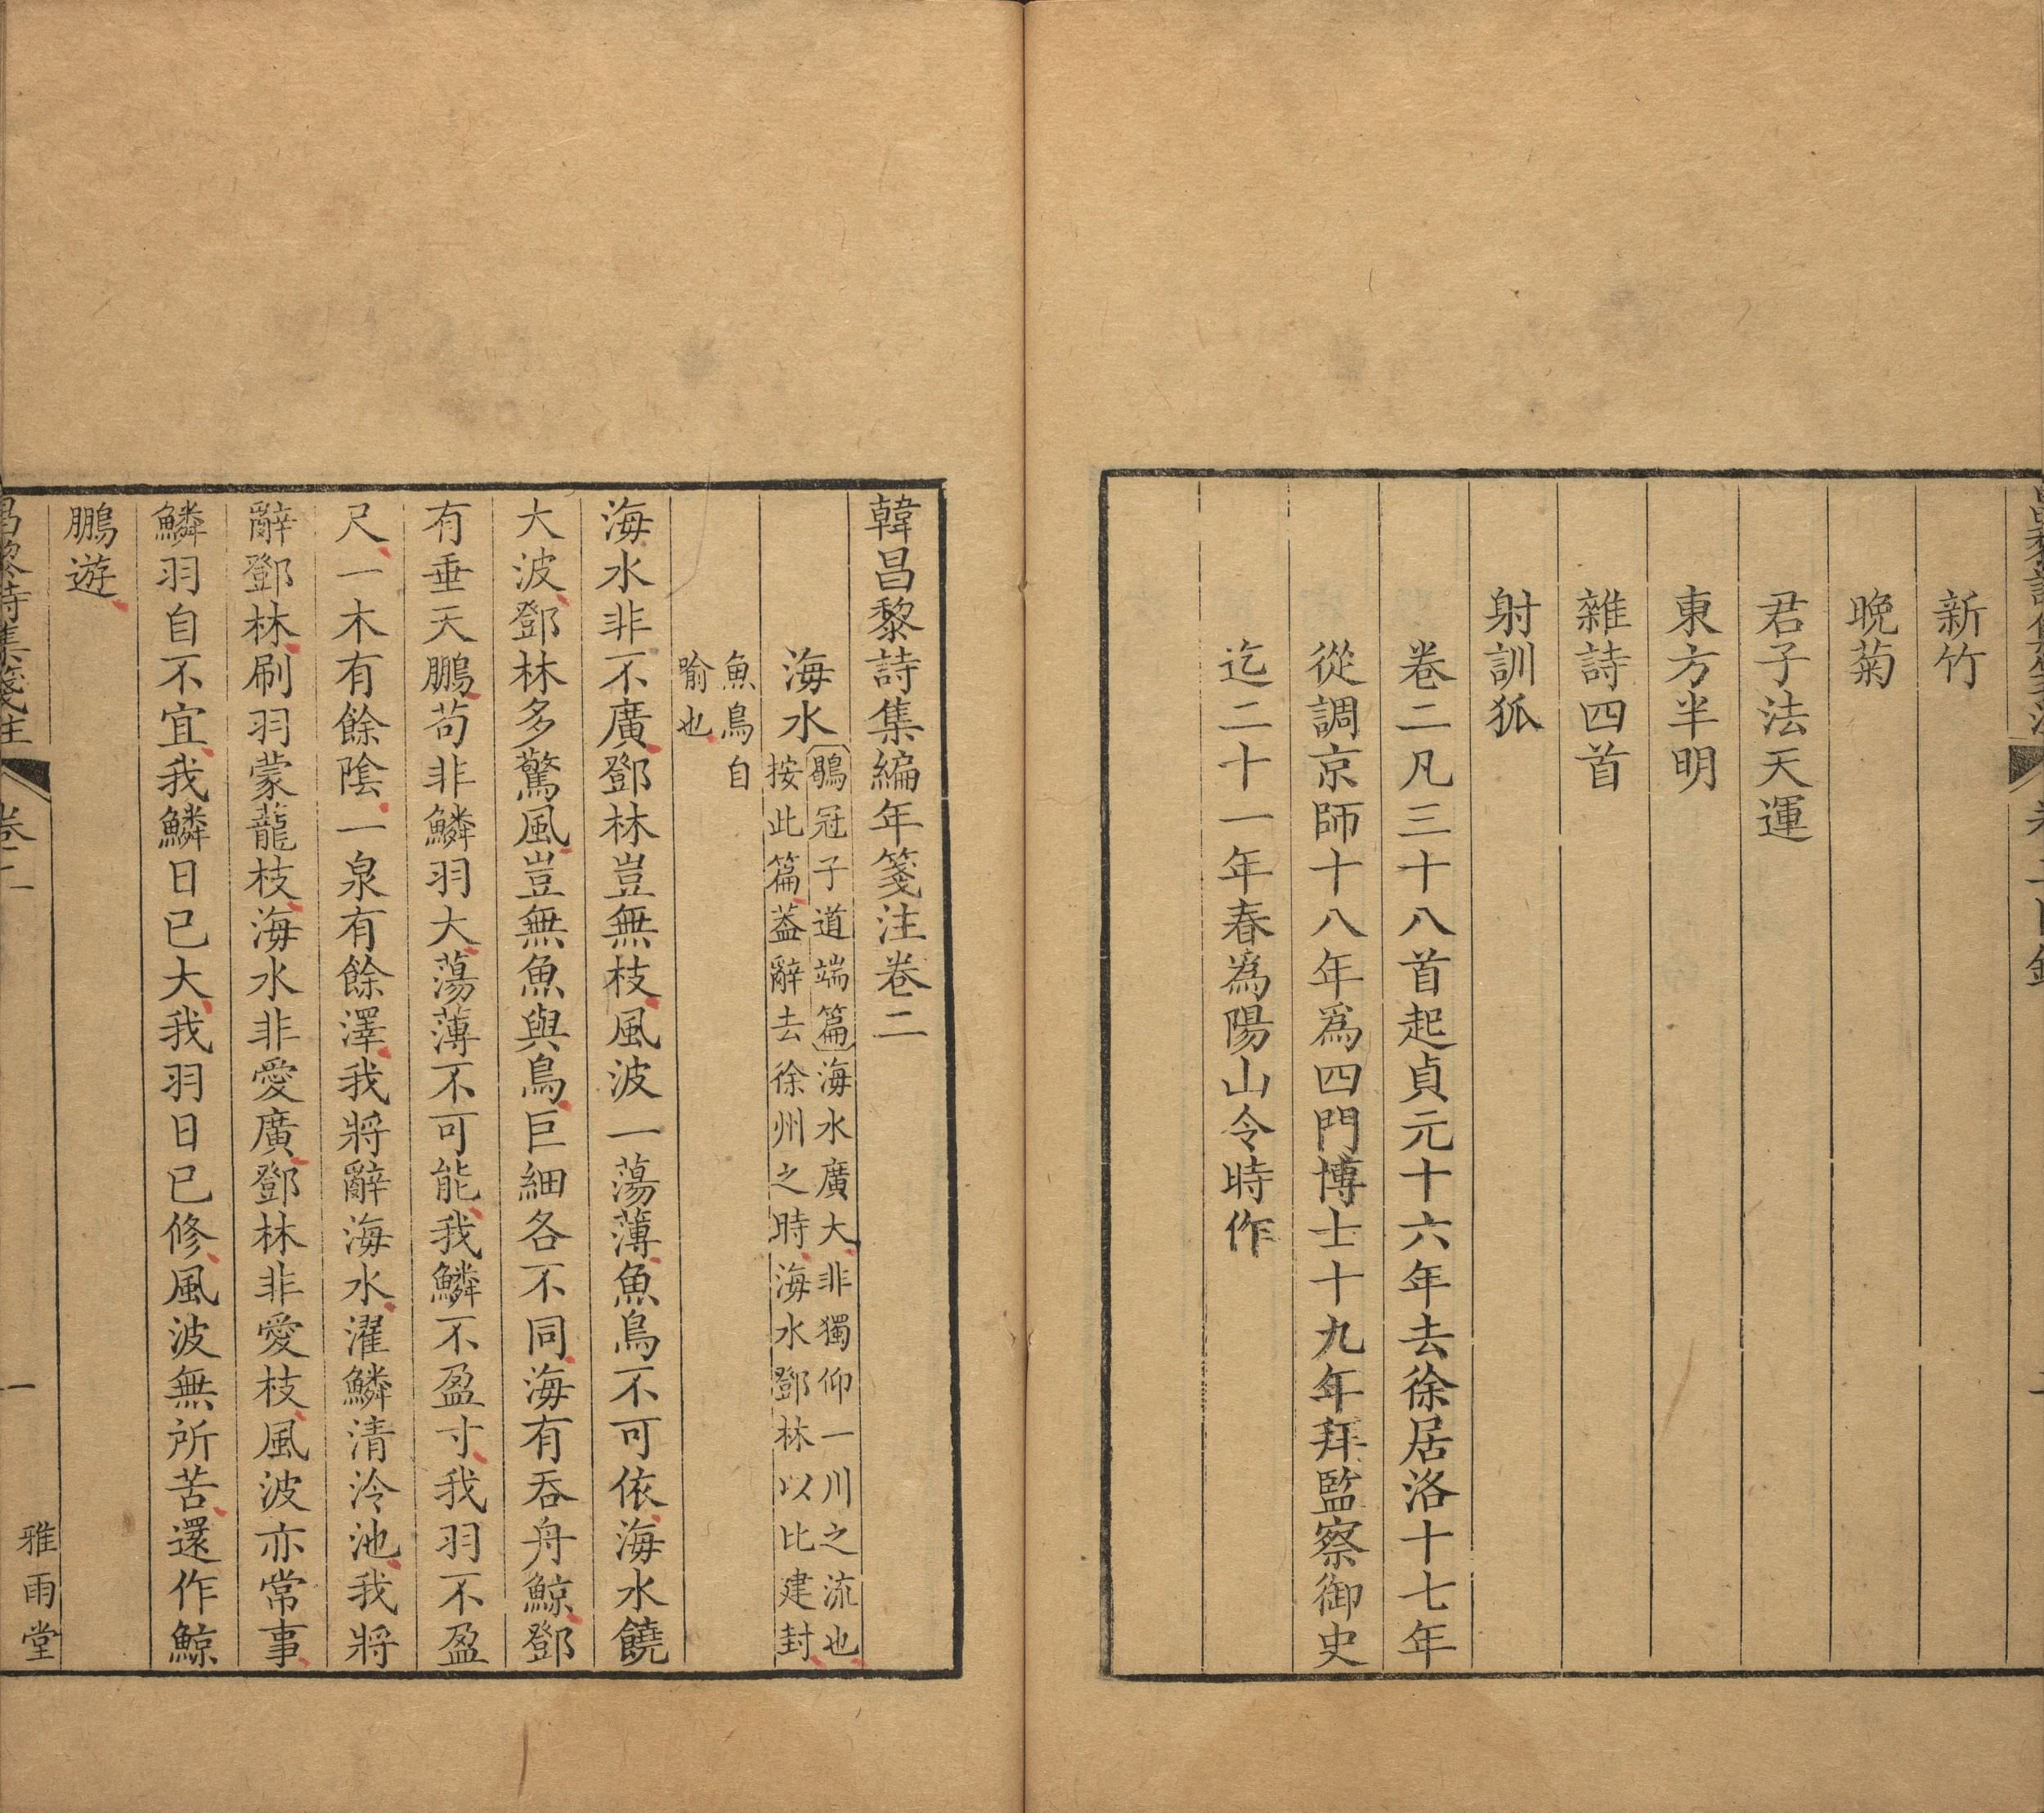 新竹
晚菊
君子法天運
東方半明
雜詩四首
射訓狐
卷二凡三十八首起貞元十六年去徐居洛十七年
從調京師十八年爲四門博士十九年拜監察御史
迄二十一年春爲陽山令時作
韓昌黎詩集編年箋注卷二
海水
鶡冠子道端篇海水廣大非獨仰一川之流也
按此篇蓋辭去徐州之時海水鄧林以比建封
魚鳥自
喻也
海水非不廣鄧林豈無枝風波一蕩薄魚鳥不可依海水饒
大波鄧林多驚風豈無魚與鳥巨細各不同海有吞舟鯨鄧
有垂天鵬苟非鱗羽大蕩薄不可能我鱗不盈寸我羽不盈
尺一木有餘陰一泉有餘澤我將辭海水濯鱗清泠池我將
辭鄧林刷羽蒙蘢枝海水非愛廣鄧林非愛枝風波亦常事
鱗羽自不宜我鱗日已大我羽日已修風波無所苦還作鯨
鵬遊
昌黎詩集箋注
卷二
一
雅雨堂